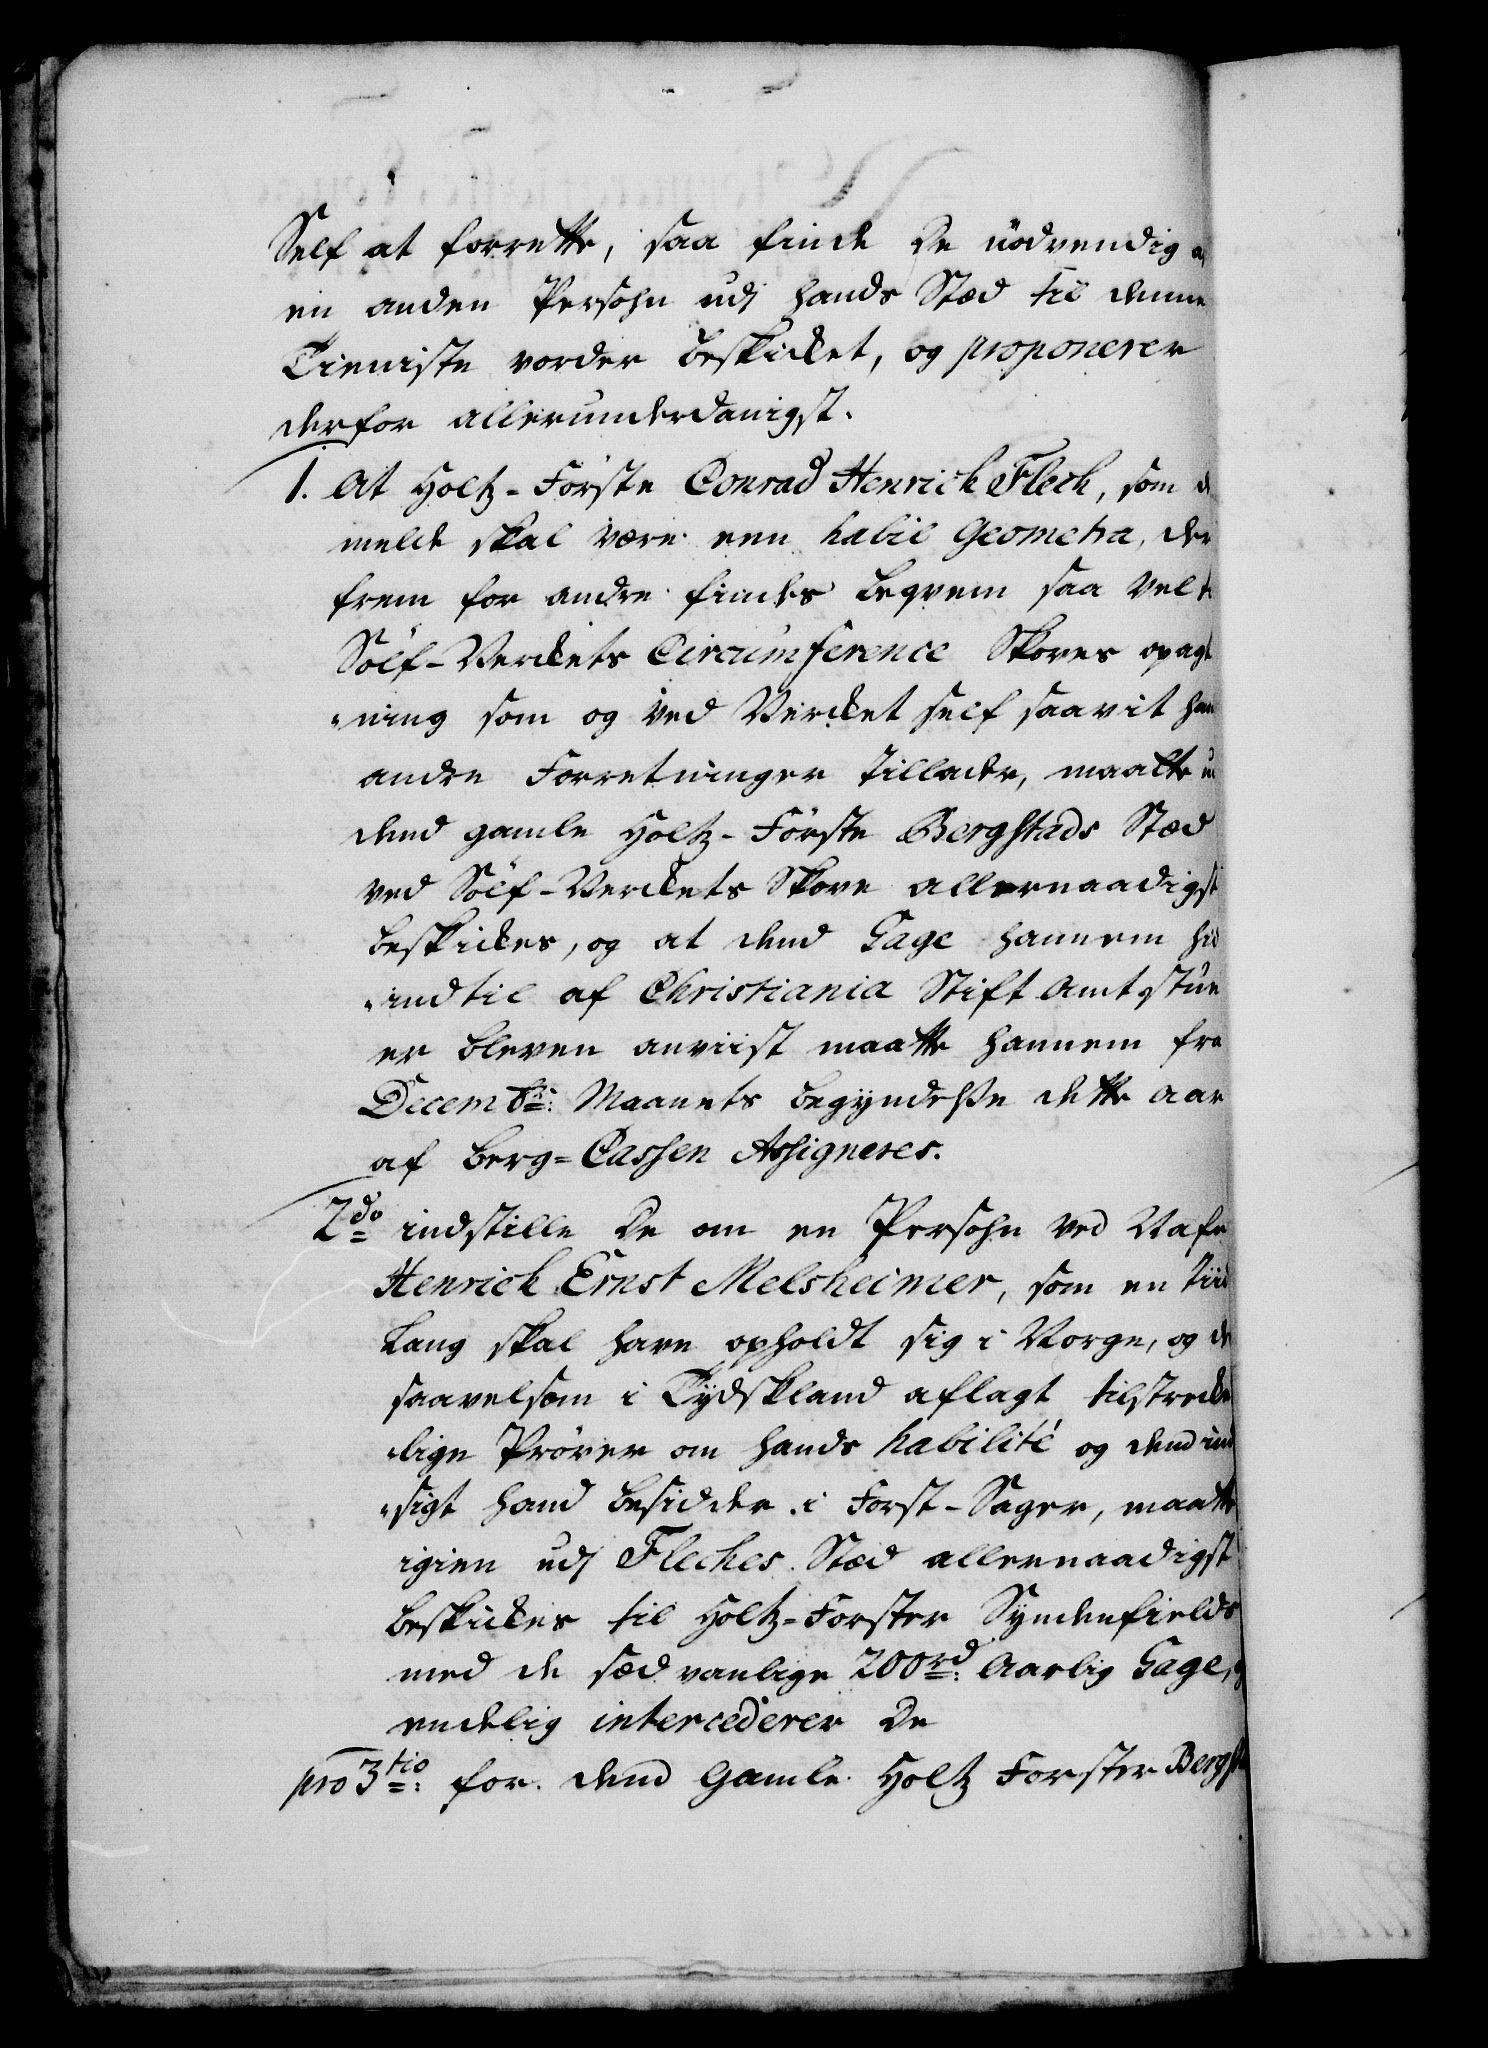 Self at forrette, saa finde de nödvendig a
en anden Persohn udj hands Stæd til denne
Tieniste vorder beskicket, og proponerer
derfor allerunderdanigst.
1. At Holtz-Förste Conrad Henrich Flech, som d
melde skal være een habil Geometra, der
frem for andre findes beqvem saa vel t
Sölf-Verckets Circumference Skoves opagt
-ning som og ved Vercket self saavit han
andre Forretninger tillader, maatte u
dend gamle Holtz-Förste Bergstads Stæd
ved Sölf-Verckets Skove allernaadigst
beskickes, og at dend Gage hannem hid
-indtil af Christiania Stift Amtstue
er bleven anviist maatte hannem fra
Decembr: Maanets begyndelße dette aar
af Berg-Cassen Assigneres.
2do indstille de om en Persohn ved Nafn
Henrich Ernst Melsheimer, som en Tiid
lang skal have opholdt sig i Norge, og d
saavelsom i Tydskland aflagt tilstrecke
-lige Pröver om hands habilité og dend ind
-sigt hand besidder i Forst-Sager, maatte
igien udj Fleches Stæd allernaadigst
beskickes til Holtz-Forster Syndenfields
med de sædvanlige 200 rd: Aarlig Gage, og
endelig intercederer de
pro 3tio: for dend Gamle Holtz Forster Bergst